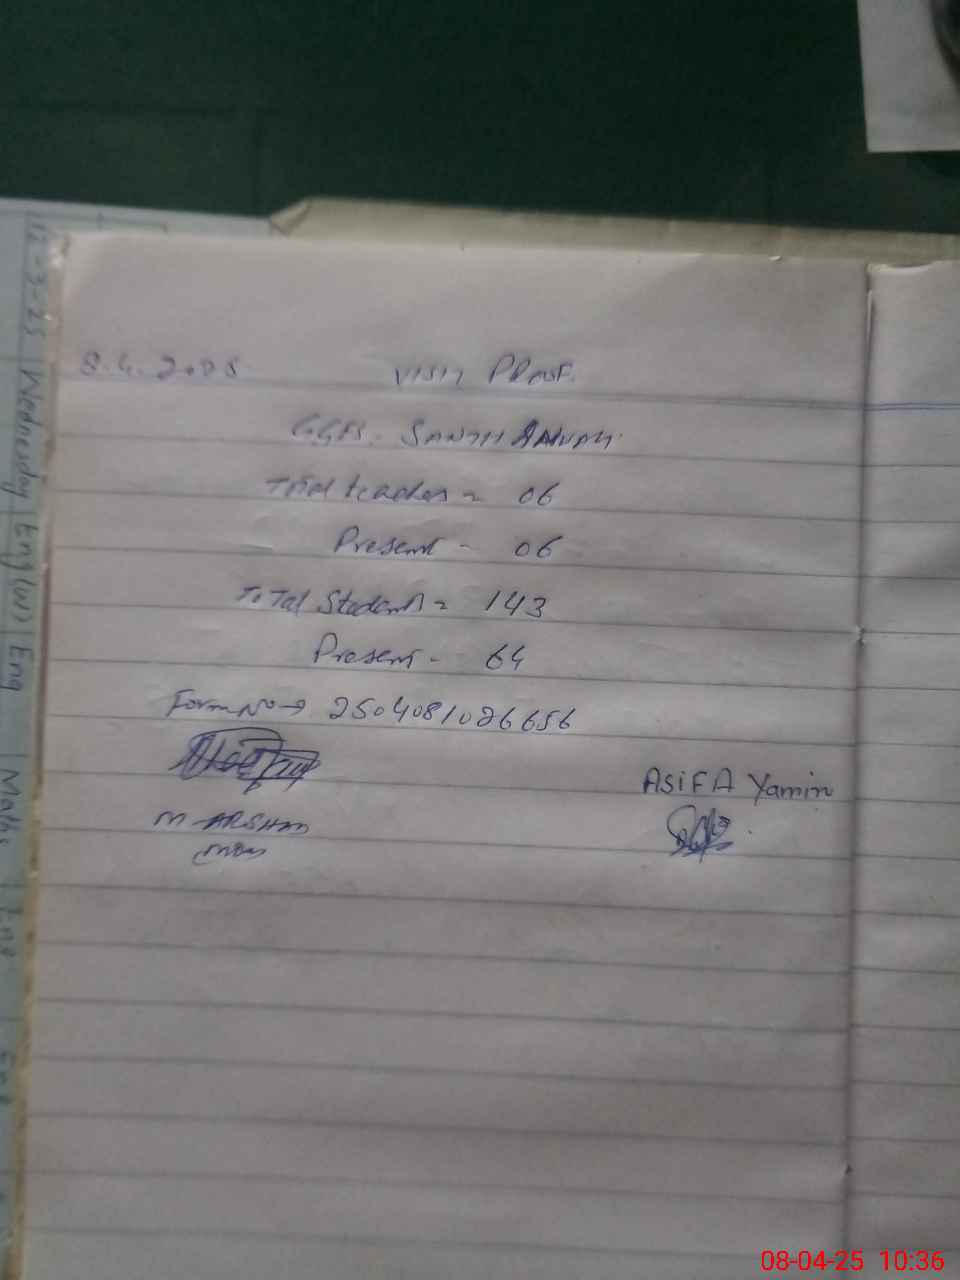 8.4.2025 VISIT PROOF.
GGPS. SANJH
Total teachers = 06
Present - 06
ToTal Students = 143
Present - 64
Form No → 2504081026656
ASiFA Yamin
M ARSHAD
12-3-25 Wednesday Eng(w) Eng Maths Eng
08-04-25 10:36